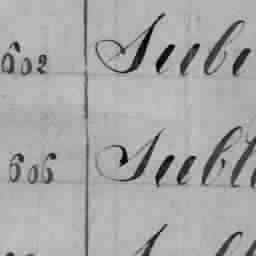 602 Subi
606 Subl